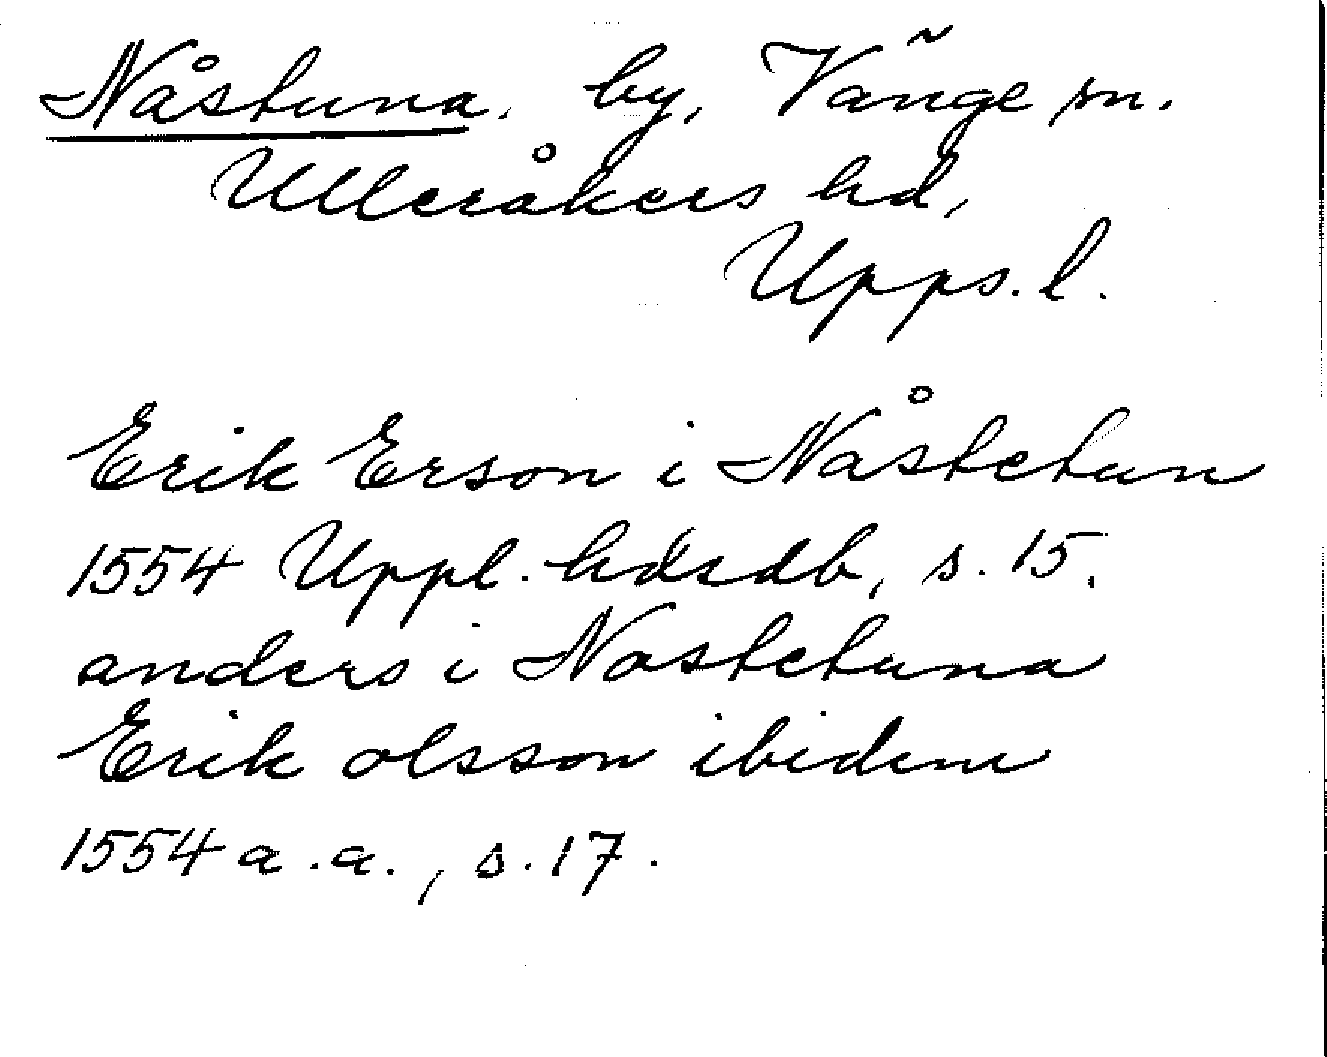 Nåstuna, by, Vänge sn.
Ulleråkers hd,
Upps. l.
Erik Erson i Nåstetun
1554 Uppl. hdsdb, s. 15.
anders i Nastetuna
Erik olsson ibidem
1554 a.a., s. 17.